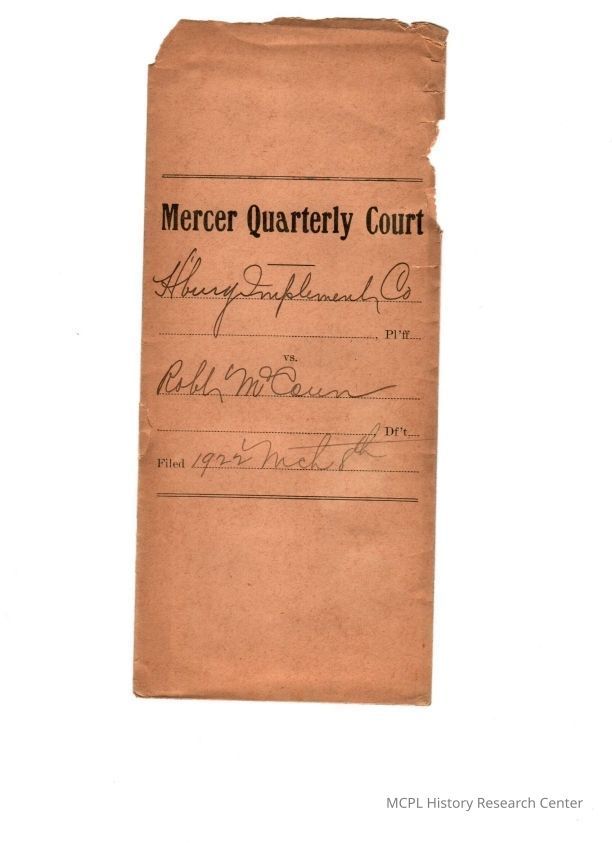 Mercer Quarterly Court
H'burg Implement Co
Pl'ff
vs.
Robt McCoun
Df't
Filed 1922 Mch 8th
MCPL History Research Center